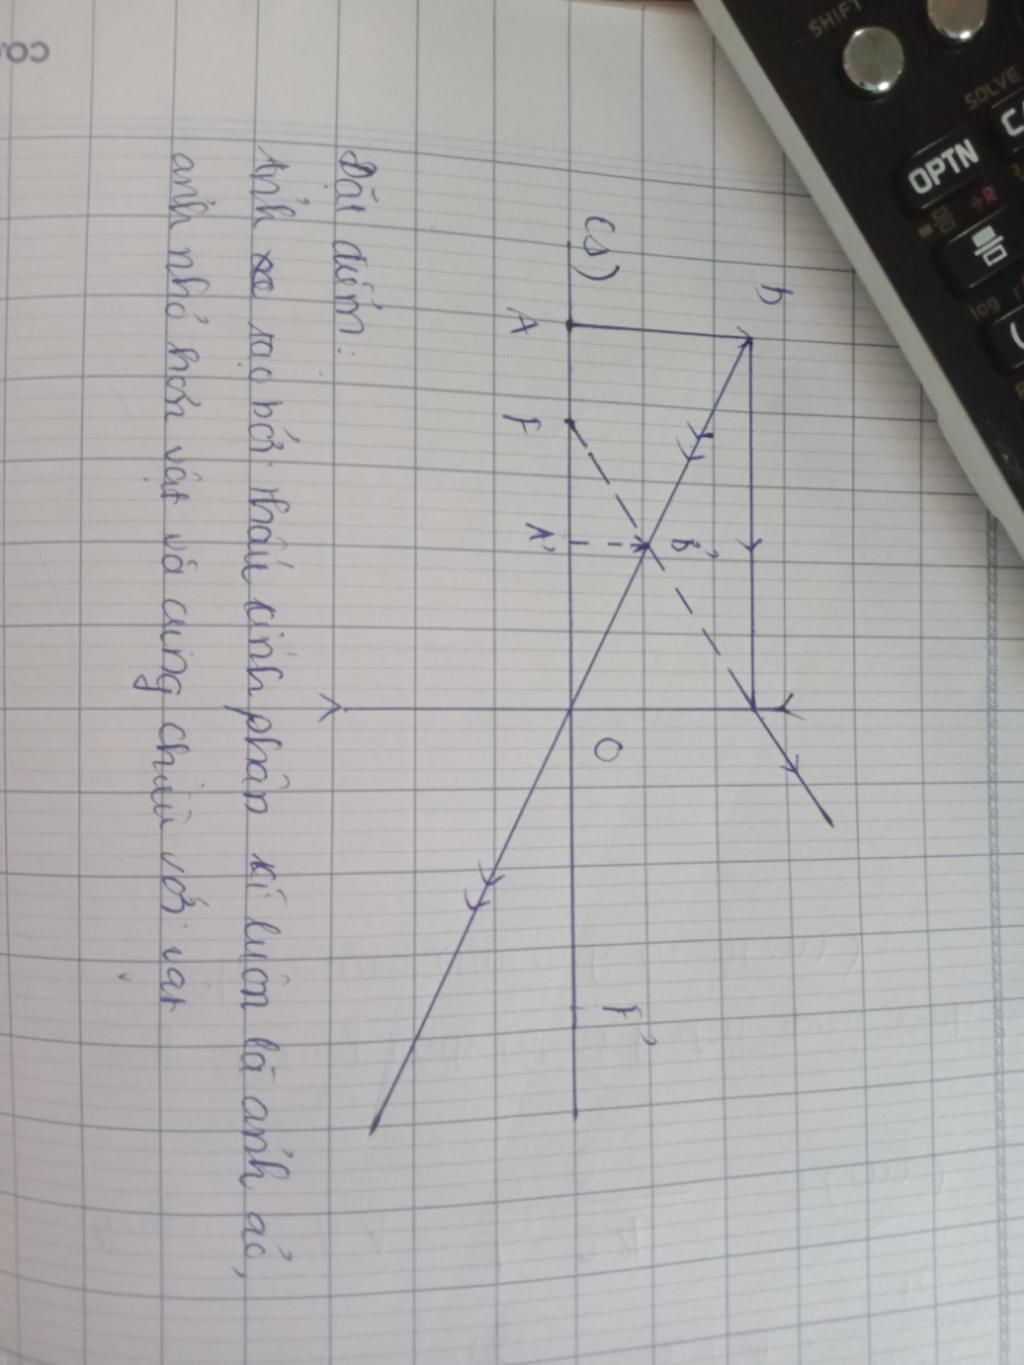 B
(s)
A
F
A'
B'
O
F'
Đặc điểm:
Ảnh tạo bởi thấu kính phân kì luôn là ảnh ảo,
ảnh nhỏ hơn vật và cùng chiều với vật
SHIFT
SOLVE
OPTN
log
CO